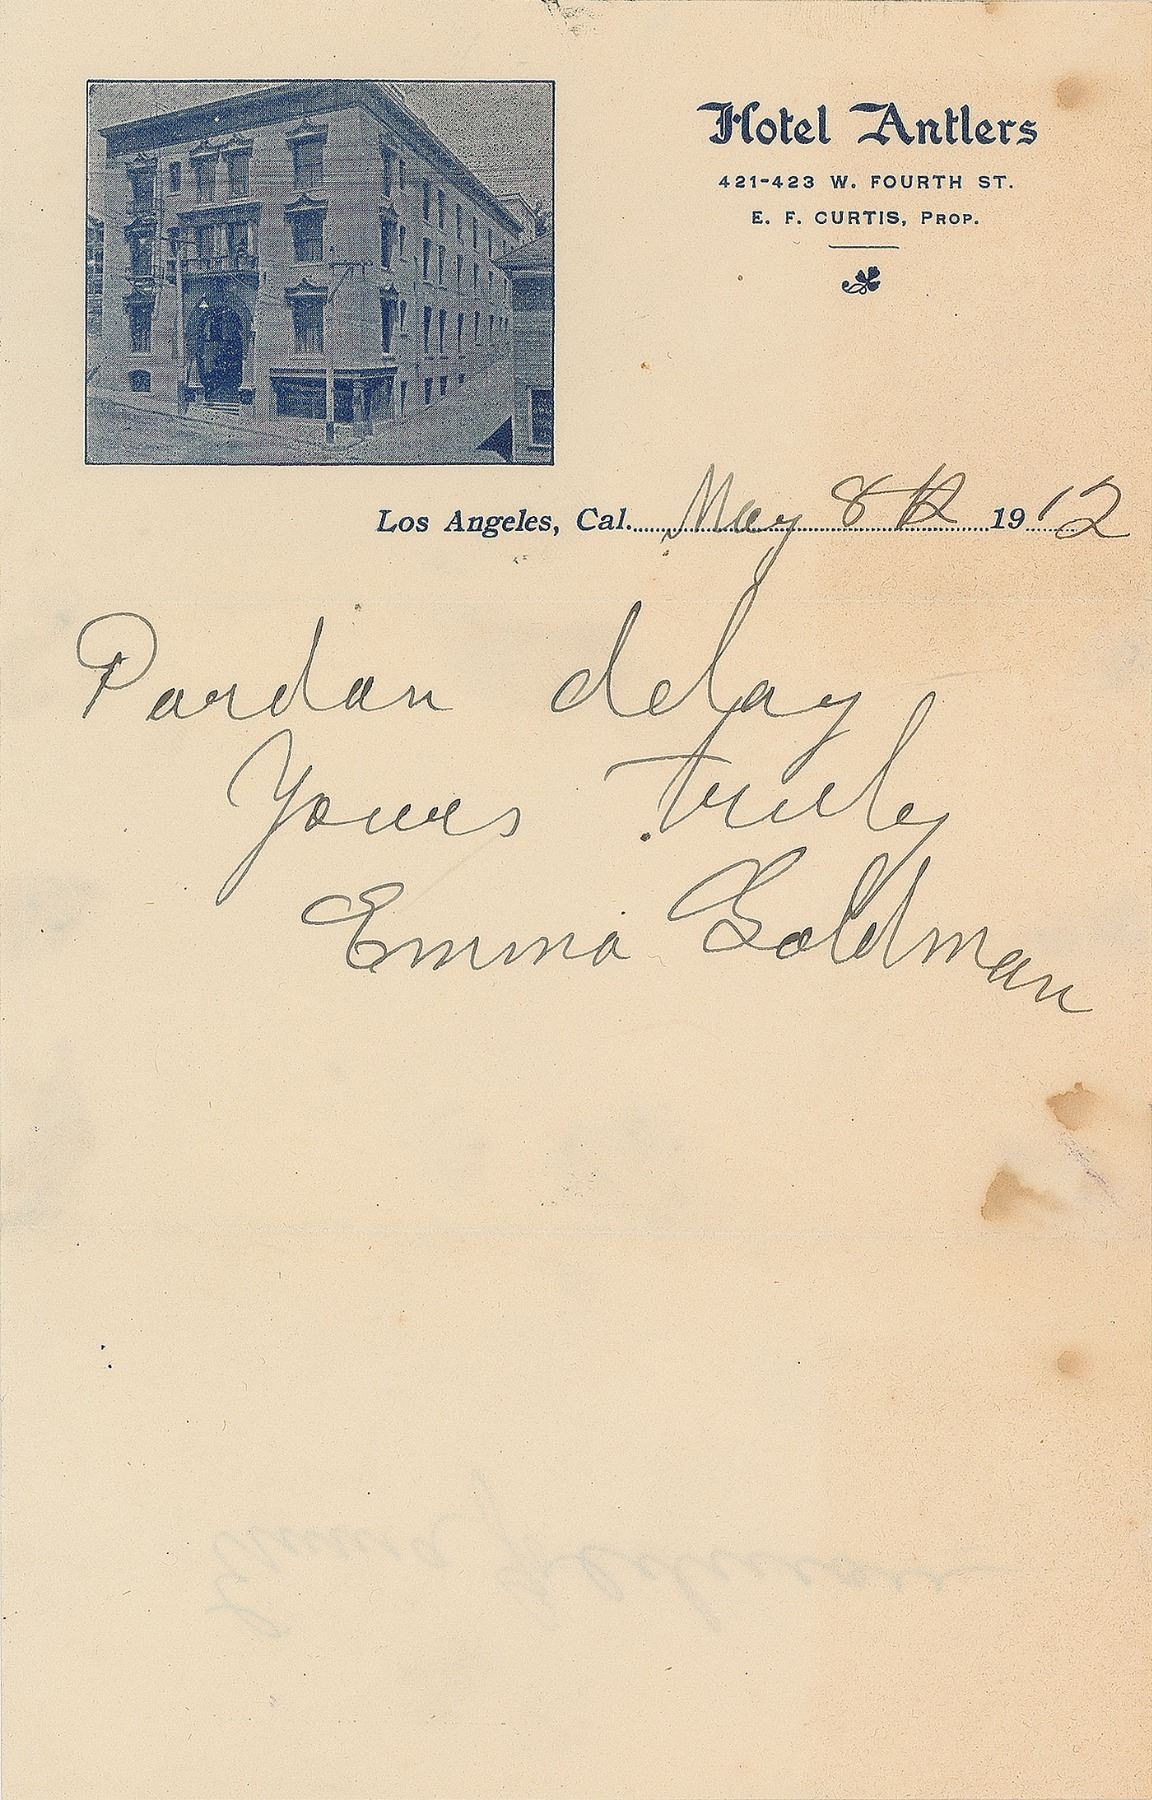 Hotel Antlers
421-423 W. FOURTH ST.
E. F. CURTIS, PROP.
Los Angeles, Cal. May 8th 1912
Pardon delay
Yours truly
Emma Goldman